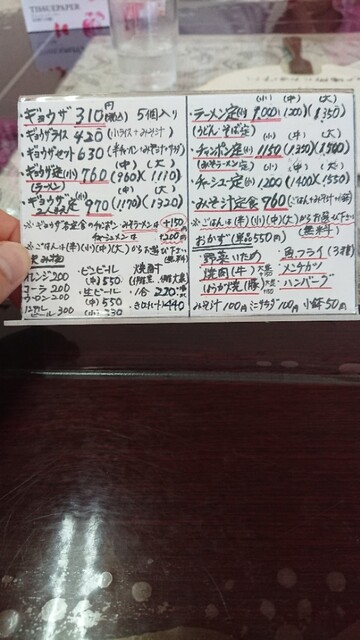 TISSUEPAPER
・ギョウザ 310円(税込) 5個入り
・ギョウザライス 420 (小ライス+みそ汁)
・ギョウザセット 630
(中) (大)
・ギョウザ定(小) 760 (960) (1110)
(ラーメン) (中) (大)
・ギョウザ 2人まえ定 970 (1170) (1320)
※ギョウザ定食のチャンポン・みそラーメンは +150円
チャーシューメンは +200円
※ごはんは(小)(中)(大)からお選び下さい
(無料)
飲み物
オレンジ 200
コーラ 200
ウーロン 200
ビール 300
・ビンビール
(中) 550
・生ビール
(中) 550
(小) 330
焼酎
1合 220
440
(小) (中) (大)
・ラーメン定(小) 1000 (1200) (1350)
(うどん・そば定) (小) (中) (大)
・チャンポン定(小) 1150 (1350) (1500)
(みそラーメン定) (小) (中) (大)
・チャーシュー定(小) 1200 (1400) (1550)
・みそ汁定食 760
※ごはんは(小)(中)(大)からお選び下さい
(無料)
おかず(単品550円)
・野菜いため
・焼肉(牛)
・しょうが焼(豚)
・魚フライ(3種)
・メンチカツ
・ハンバーグ
みそ汁 100円 ミニサラダ 100円 小鉢 50円